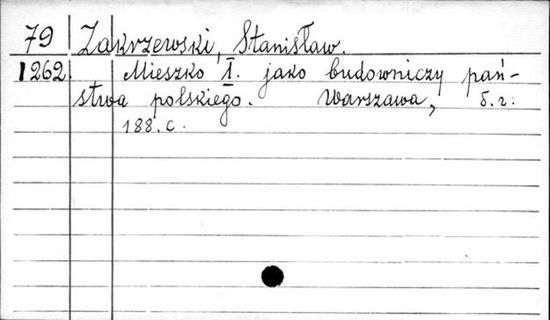 79 Zakrzewski, Stanisław.
1262. Mieszko I. jako budowniczy pań-
stwa polskiego. Warszawa, б.г.
188.с.